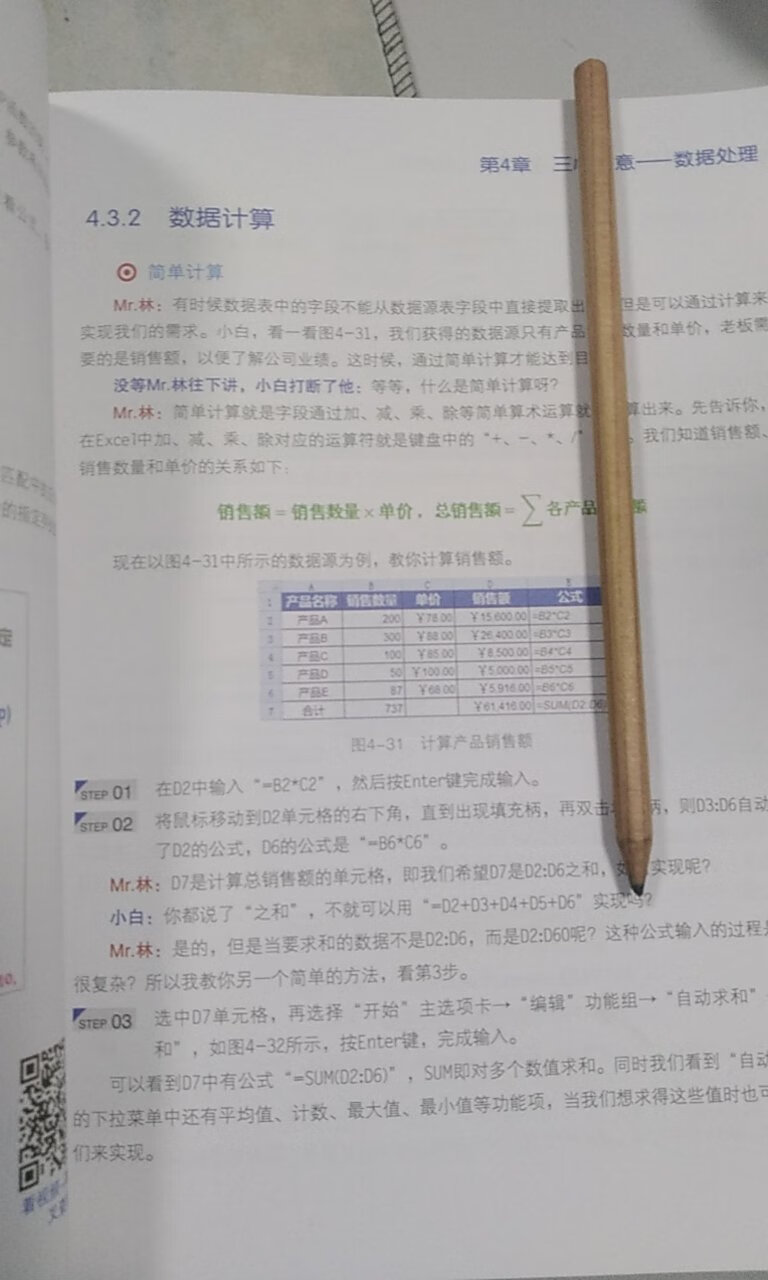 第4章 三 意——数据处理
4.3.2 数据计算
简单计算
Mr.林：有时候数据表中的字段不能从数据源表字段中直接提取出 但是可以通过计算来
实现我们的需求。小白，看一看图4-31，我们获得的数据源只有产品 数量和单价，老板需
要的是销售额，以便了解公司业绩。这时候，通过简单计算才能达到目
没等Mr.林往下讲，小白打断了他：等等，什么是简单计算呀？
Mr.林：简单计算就是字段通过加、减、乘、除等简单算术运算就 算出来。先告诉你，
在Excel中加、减、乘、除对应的运算符就是键盘中的“+、-、*、/” 。我们知道销售额、
销售数量和单价的关系如下：
销售额=销售数量×单价，总销售额=∑各产品 额
现在以图4-31中所示的数据源为例，教你计算销售额。
A B C D E
1 产品名称 销售数量 单价 销售额 公式
2 产品A 200 ￥78.00 ￥15,600.00 =B2*C2
3 产品B 300 ￥88.00 ￥26,400.00 =B3*C3
4 产品C 100 ￥85.00 ￥8,500.00 =B4*C4
5 产品D 50 ￥100.00 ￥5,000.00 =B5*C5
6 产品E 87 ￥68.00 ￥5,916.00 =B6*C6
7 合计 737 ￥61,416.00 =SUM(D2:D6)
图4-31 计算产品销售额
STEP 01 在D2中输入“=B2*C2”，然后按Enter键完成输入。
STEP 02 将鼠标移动到D2单元格的右下角，直到出现填充柄，再双击 柄，则D3:D6自动
了D2的公式，D6的公式是“=B6*C6”。
Mr.林：D7是计算总销售额的单元格，即我们希望D7是D2:D6之和，如 实现呢？
小白：你都说了“之和”，不就可以用“=D2+D3+D4+D5+D6”实现吗？
Mr.林：是的，但是当要求和的数据不是D2:D6，而是D2:D60呢？这种公式输入的过程是
很复杂？所以我教你另一个简单的方法，看第3步。
STEP 03 选中D7单元格，再选择“开始”主选项卡→“编辑”功能组→“自动求和”
和”，如图4-32所示，按Enter键，完成输入。
可以看到D7中有公式“=SUM(D2:D6)”，SUM即对多个数值求和。同时我们看到“自动
的下拉菜单中还有平均值、计数、最大值、最小值等功能项，当我们想求得这些值时也可
们来实现。